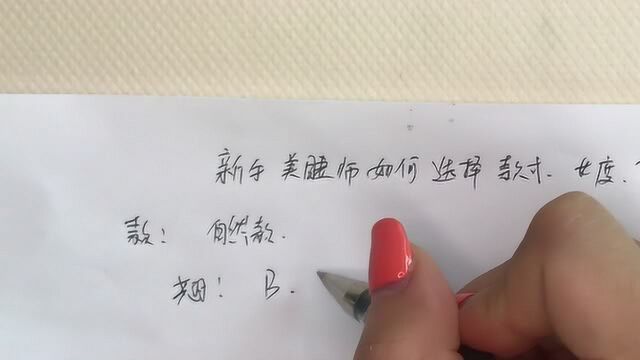 新手美睫师如何选择款式.
款: 自然款.
翘: B.